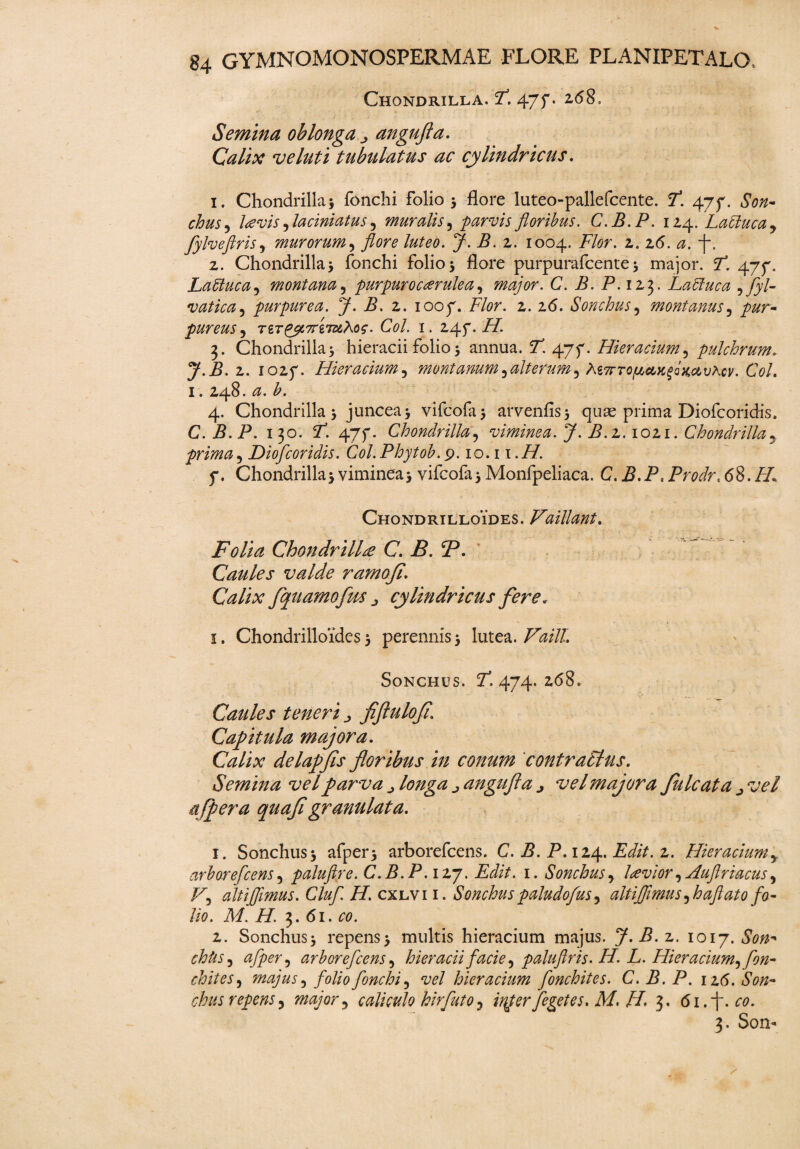 84 GYMNOMONOSPERMAE FLORE PLANIPETALO.
CHONDRILLA. T. 475. 268.
Semina oblonga, anguſta.
Calix veluti tubulatus ac cylindricus.
1. Chondrilla; ſonchi folio; flore luteo-palleſcente. T. 475. Son-
chus, lævis, laciniatus, muralis, parvis floribus. C. B. P. 124. Lactuca,
ſylveſtris, murorum, flore luteo. J. B. 2. 1004. Flor. 2. 26. a. †.
2. Chondrilla; ſonchi folio; flore purpuraſcente; major. T. 475.
Lactuca, montana, purpurocærulea, major. C. B. P. 123. Lactuca, ſyl-
vatica, purpurea. J. B. 2. 1005. Flor. 2. 26. Sonchus, montanus, pur-
pureus, τετραπέταλος. Col. 1. 245. H.
3. Chondrilla; hieracii folio; annua. T. 475. Hieracium, pulchrum.
J. B. 2. 1025. Hieracium, montanum, alterum, λεπτομακρόκαυλον. Col.
1. 248. a. b.
4. Chondrilla; juncea; viſcoſa; arvenſis; quæ prima Dioſcoridis.
C. B. P. 130. T. 475. Chondrilla, viminea. J. B. 2. 1021. Chondrilla,
prima, Dioſcoridis. Col. Phytob. 9. 10. 11. H.
5. Chondrilla; viminea; viſcoſa; Monſpeliaca. C. B. P. Prodr. 68. H.
CHONDRILLOÏDES. Vaillant.
Folia Chondrillæ C. B. P.
Caules valde ramoſi.
Calix ſquamoſus, cylindricus fere.
1. Chondrilloïdes; perennis; lutea. Vaill.
SONCHUS. T. 474. 268.
Caules teneri, fiſtuloſi.
Capitula majora.
Calix delapſis floribus in conum contractus.
Semina vel parva, longa, anguſta, vel majora ſulcata, vel
aſpera quaſi granulata.
1. Sonchus; aſper; arboreſcens. C. B. P. 124. Edit. 2. Hieracium,
arboreſcens, paluſtre. C. B. P. 127. Edit. 1. Sonchus, lævior, Auſtriacus,
V, altiſſimus. Cluſ. H. CXLVI 1. Sonchus paludoſus, altiſſimus, haſtato fo-
lio. M. H. 3. 61. co.
2. Sonchus; repens; multis hieracium majus. J. B. 2. 1017. Son-
chus, aſper, arboreſcens, hieracii facie, paluſtris. H. L. Hieracium, ſon-
chites, majus, folio ſonchi, vel hieracium ſonchites. C. B. P. 126. Son-
chus repens, major, caliculo hirſuto, inter ſegetes. M. H. 3. 61. †. co.
3. Son-